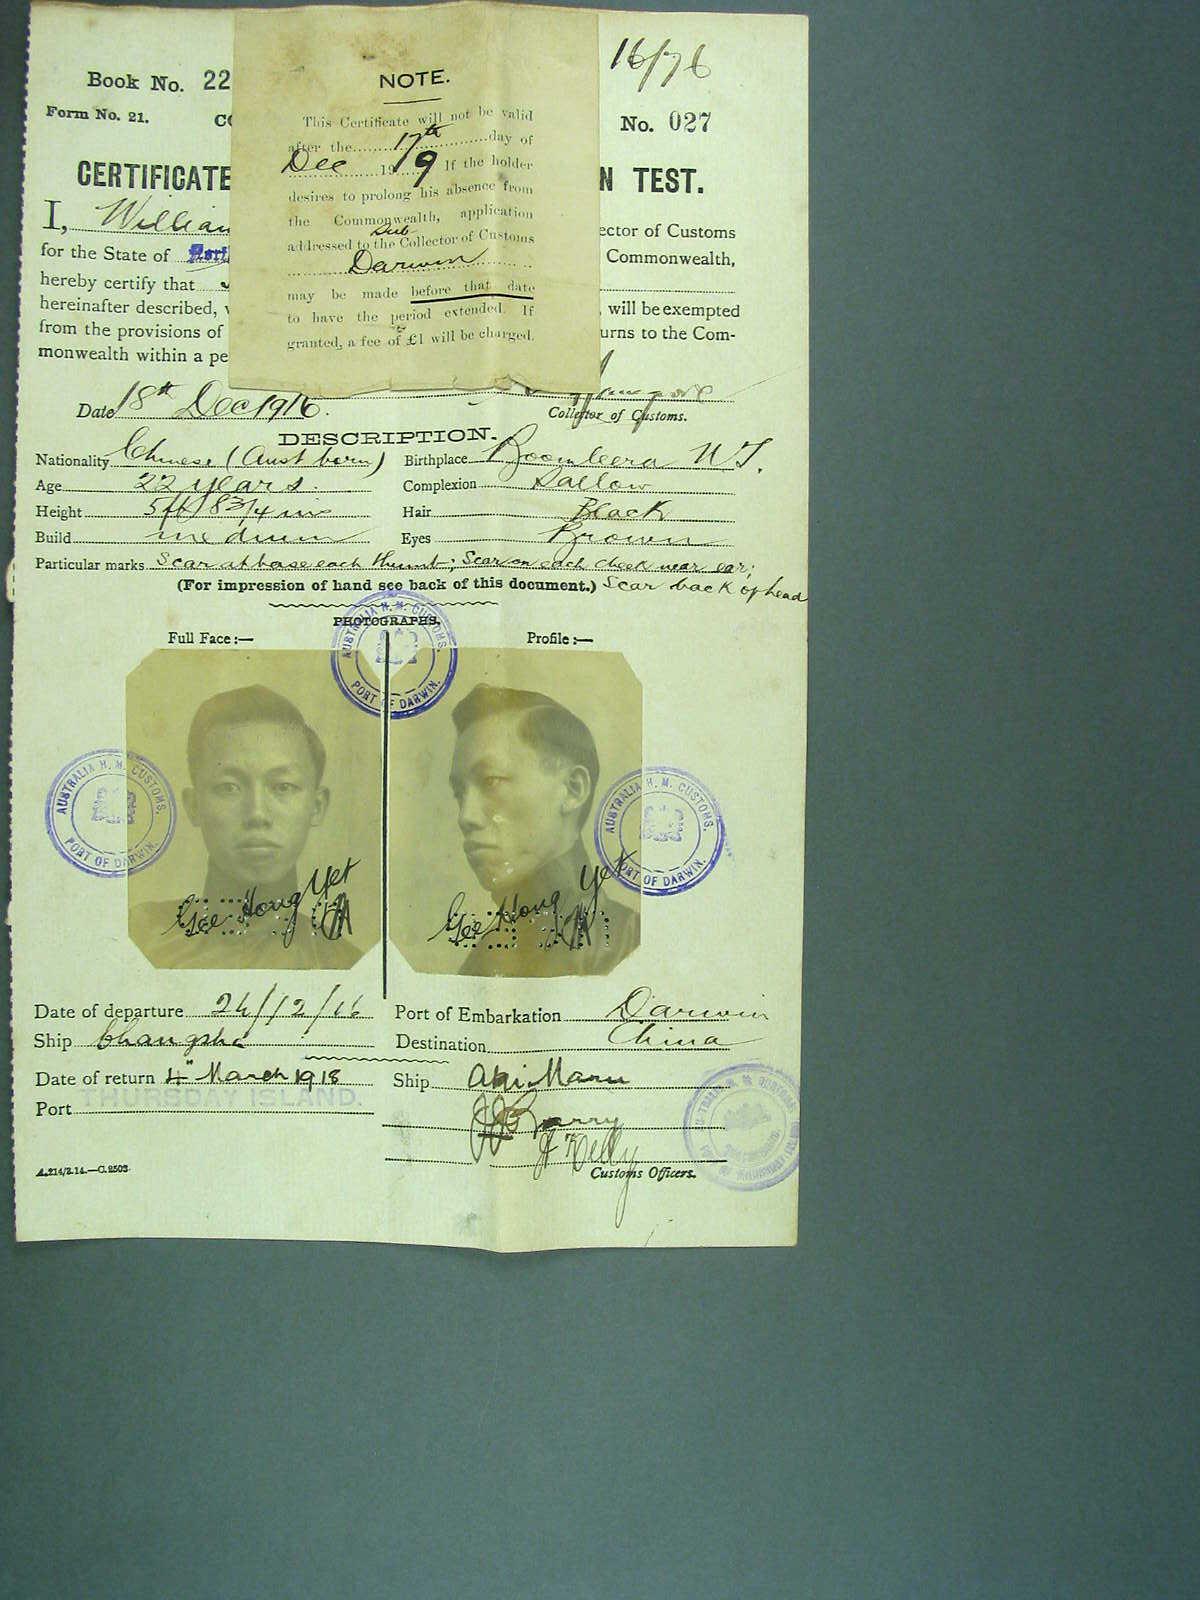 16/76
Book No. 22
NOTE.
Form No. 21.
No. 027
This Certificate will not be valid
after the 17th day of
Dec 1919 If the holder
desires to prolong his absence from
the Commonwealth, application
addressed to the Sub Collector of Customs
Darwin
may be made before that date
to have the period extended. If
granted, a fee of £1 will be charged.
CERTIFICATE N TEST.
I, William ector of Customs
for the State of Commonwealth,
hereby certify that
hereinafter described, will be exempted
from the provisions of urns to the Com-
monwealth within a pe
Date 18th Dec 1916.
Collector of Customs.
DESCRIPTION.
Nationality Chinese (Aust born) Birthplace Boomleera N.T.
Age 22 years. Complexion Sallow
Height 5ft 8 3/4 ins Hair Black
Build medium Eyes Brown
Particular marks Scar at base each thumb; Scar on each cheek near ear;
(For impression of hand see back of this document.) Scar back of head
PHOTOGRAPHS.
Full Face:— Profile:—
AUSTRALIA H. M. CUSTOMS. PORT OF DARWIN.
AUSTRALIA H. M. CUSTOMS. PORT OF DARWIN.
AUSTRALIA H. M. CUSTOMS. PORT OF DARWIN.
Gee Hong Yet
Gee Hong Yet
Date of departure 24/12/16 Port of Embarkation Darwin
Ship Changsha Destination China
Date of return 4" March 1918 Ship Aki Maru
Port THURSDAY ISLAND.
Barry
J Kelly
A.214/2.14.—C.2503. Customs Officers.